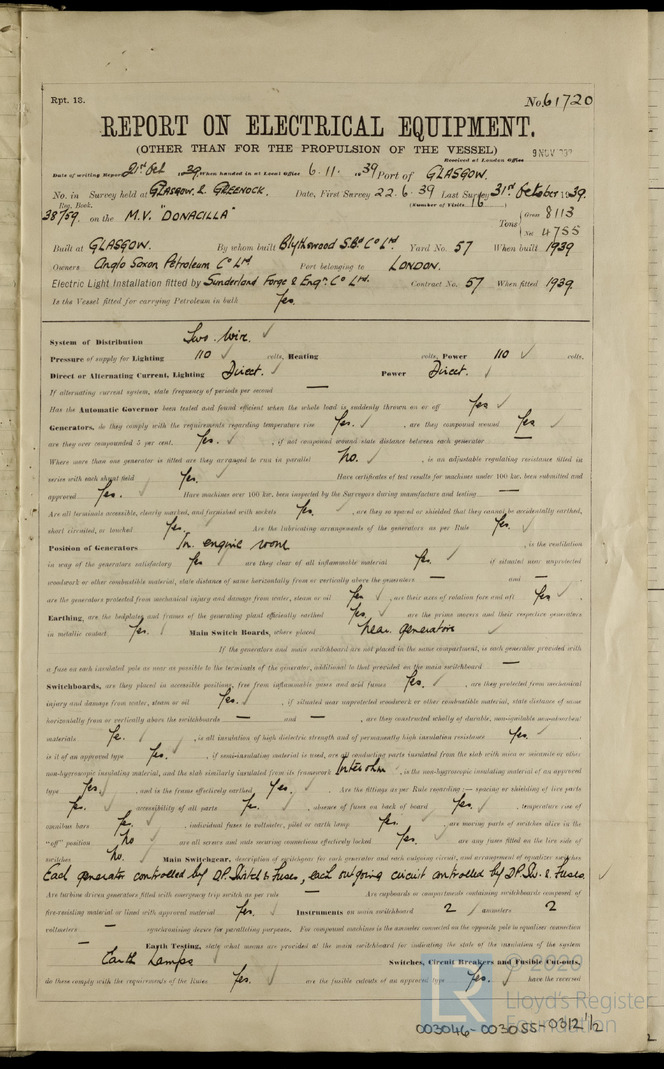 Rpt. 13. No. 61720
REPORT ON ELECTRICAL EQUIPMENT.
(OTHER THAN FOR THE PROPULSION OF THE VESSEL)
Received at London Office 9 NOV
Date of writing Report 21st Oct 1939 When handed in at Local Office 6.11.1939 Port of GLASGOW.
No. in Survey held at GLASGOW & GREENOCK. Date, First Survey 22.6.39 Last Survey 31st October 1939.
Reg. Book. (Number of Visits 16
38759. on the M.V. "DONACILLA" Tons { Gross 8113
Net 4755
Built at GLASGOW. By whom built Blythswood S.B. Co Ltd. Yard No. 57 When built 1939
Owners Anglo Saxon Petroleum Co Ltd. Port belonging to LONDON.
Electric Light Installation fitted by Sunderland Forge & Engr. Co Ltd. Contract No. 57 When fitted 1939.
Is the Vessel fitted for carrying Petroleum in bulk Yes.
System of Distribution Two Wire.
Pressure of supply for Lighting 110 volts, Heating volts, Power 110 volts.
Direct or Alternating Current, Lighting Direct. Power Direct.
If alternating current system, state frequency of periods per second —
Has the Automatic Governor been tested and found efficient when the whole load is suddenly thrown on or off Yes
Generators, do they comply with the requirements regarding temperature rise Yes. , are they compound wound Yes
are they over compounded 5 per cent. Yes. , if not compound wound state distance between each generator —
Where more than one generator is fitted are they arranged to run in parallel No. , is an adjustable regulating resistance fitted in
series with each shunt field Yes. Have certificates of test results for machines under 100 kw. been submitted and
approved Yes. Have machines over 100 kw. been inspected by the Surveyors during manufacture and testing —
Are all terminals accessible, clearly marked, and furnished with sockets Yes. , are they so spaced or shielded that they cannot be accidentally earthed,
short circuited, or touched Yes. Are the lubricating arrangements of the generators as per Rule Yes.
Position of Generators In engine room , is the ventilation
in way of the generators satisfactory Yes are they clear of all inflammable material Yes. if situated near unprotected
woodwork or other combustible material, state distance of same horizontally from or vertically above the generators — and —
are the generators protected from mechanical injury and damage from water, steam or oil Yes , are their axes of rotation fore and aft Yes
Earthing, are the bedplates and frames of the generating plant efficiently earthed Yes. are the prime movers and their respective generators
in metallic contact Yes. Main Switch Boards, where placed near generators
If the generators and main switchboard are not placed in the same compartment, is each generator provided with
a fuse on each insulated pole as near as possible to the terminals of the generator, additional to that provided on the main switchboard —
Switchboards, are they placed in accessible positions, free from inflammable gases and acid fumes Yes. , are they protected from mechanical
injury and damage from water, steam or oil Yes. , if situated near unprotected woodwork or other combustible material, state distance of same
horizontally from or vertically above the switchboards — and — , are they constructed wholly of durable, non-ignitable non-absorbent
materials Yes. , is all insulation of high dielectric strength and of permanently high insulation resistance Yes.
is it of an approved type Yes. , if semi-insulating material is used, are all conducting parts insulated from the slab with mica or micanite or other
non-hygroscopic insulating material, and the slab similarly insulated from its framework , is the non-hygroscopic insulating material of an approved
type Yes. , and is the frame effectively earthed Yes. Are the fittings as per Rule regarding :— spacing or shielding of live parts
Yes. , accessibility of all parts Yes. , absence of fuses on back of board Yes. , temperature rise of
omnibus bars Yes. , individual fuses to voltmeter, pilot or earth lamp Yes. , are moving parts of switches alive in the
"off" position No are all screws and nuts securing connections effectively locked Yes. are any fuses fitted on the live side of
switches No. Main Switchgear, description of switchgear for each generator and each outgoing circuit, and arrangement of equalizer switches
Each generator controlled by D.P. Switch & Fuses, each outgoing circuit controlled by D.P. Sw. & Fuses
Are turbine driven generators fitted with emergency trip switch as per rule — Are cupboards or compartments containing switchboards composed of
fire-resisting material or lined with approved material Yes. Instruments on main switchboard 2 ammeters 2
voltmeters — synchronising device for paralleling purposes. For compound machines is the ammeter connected on the opposite pole to equaliser connection
— Earth Testing, state what means are provided at the main switchboard for indicating the state of the insulation of the system
Earth Lamps Switches, Circuit Breakers and Fusible Cut-outs,
do these comply with the requirements of the Rules Yes. are the fusible cutouts of an approved type Yes. have the reversed
© 2020
Lloyd's Register
Foundation
003046-003055-0312 1/2